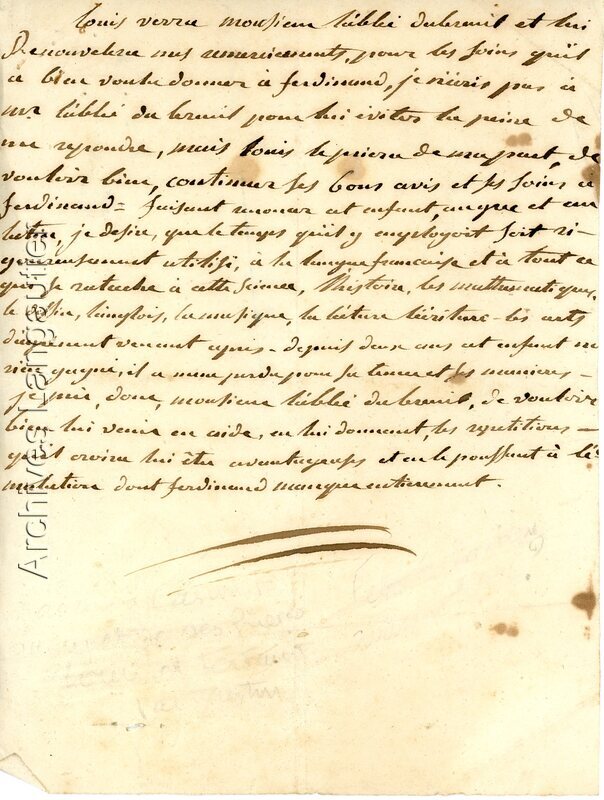 Louis verra monsieur l'abbé dubreuil et lui
Renouvelera mes remerciements, pour les soins qu'il
a bien voulu donner à ferdinand, je n'écris pas à
mr l'abbé du breuil pour lui éviter la peine de
me repondre, mais louis le priera de ma part, de
vouloir bien, continuer ses bons avis et ses soins à
ferdinand = faisant renoncer cet enfant, au grec et au
latin, je desire, que le temps qu'il y employoit soit ri-
goureusement utilisé, à la langue française et à tout ce
qui se ratache à cette science, l'histoire, les mathematiques,
le l'anglois, la musique, la lecture l'écriture - les arts
d'agrement venant après - depuis deux ans cet enfant n'a
rien gagné, il a meme perdu pour sa tenue et ses manieres -
je prie, donc, monsieur l'abbé dubreuil, de vouloir
bien lui venir en aide, en lui donnant, les repetitions -
qu'il croira lui être avantageuses et en le poussant à l'é-
mulation dont ferdinand manque entierement.
Archives Langautier